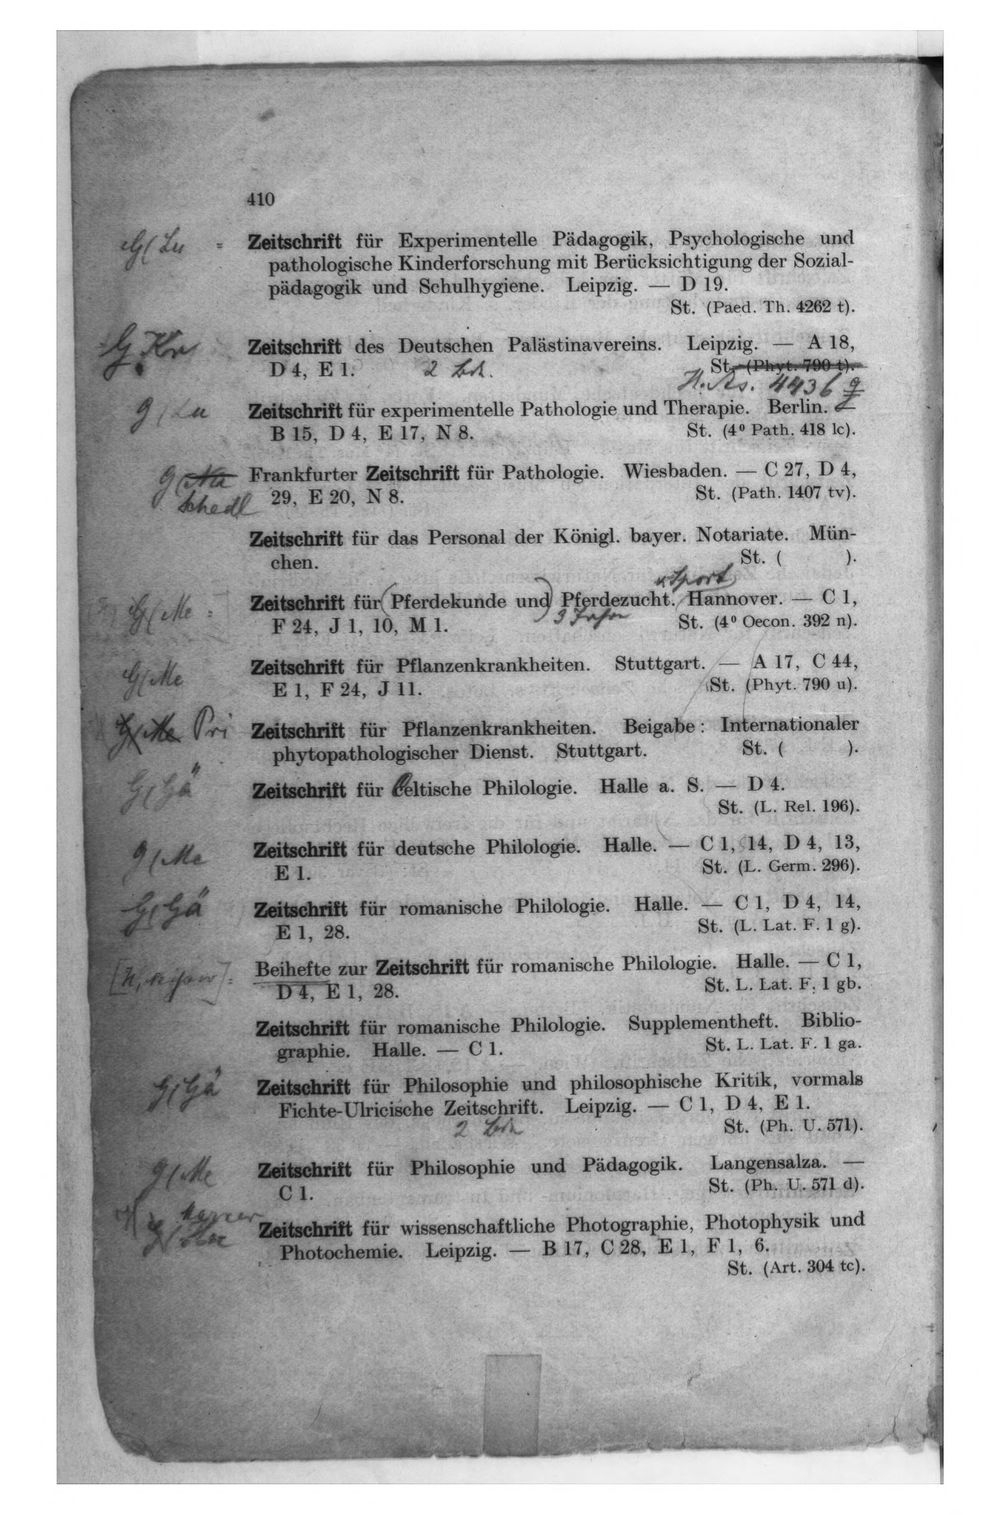 410
G/Lu = Zeitschrift für Experimentelle Pädagogik, Psychologische und
pathologische Kinderforschung mit Berücksichtigung der Sozial-
pädagogik und Schulhygiene. Leipzig. — D 19.
St. (Paed. Th. 4262 t).
G Kr Zeitschrift des Deutschen Palästinavereins. Leipzig. — A 18,
D 4, E 1. St. (Phyt. 790 t).
H. As. 4436 g
g/Lu Zeitschrift für experimentelle Pathologie und Therapie. Berlin. —
B 15, D 4, E 17, N 8. St. (4⁰ Path. 418 lc).
Frankfurter Zeitschrift für Pathologie. Wiesbaden. — C 27, D 4,
Schedl 29, E 20, N 8. St. (Path. 1407 tv).
Zeitschrift für das Personal der Königl. bayer. Notariate. Mün-
chen. St. ( ).
u. Sport
G/Me = Zeitschrift für (Pferdekunde und) Pferdezucht. Hannover. — C 1,
F 24, J 1, 10, M 1. St. (4⁰ Oecon. 392 n).
G/Me Zeitschrift für Pflanzenkrankheiten. Stuttgart. — A 17, C 44,
E 1, F 24, J 11. St. (Phyt. 790 u).
G/Me Pri Zeitschrift für Pflanzenkrankheiten. Beigabe: Internationaler
phytopathologischer Dienst. Stuttgart. St. ( ).
G/Gä Zeitschrift für Celtische Philologie. Halle a. S. — D 4.
St. (L. Rel. 196).
g/Me Zeitschrift für deutsche Philologie. Halle. — C 1, 14, D 4, 13,
E 1. St. (L. Germ. 296).
G/Gä Zeitschrift für romanische Philologie. Halle. — C 1, D 4, 14,
E 1, 28. St. (L. Lat. F. 1 g).
Beihefte zur Zeitschrift für romanische Philologie. Halle. — C 1,
D 4, E 1, 28. St. L. Lat. F. 1 gb.
Zeitschrift für romanische Philologie. Supplementheft. Biblio-
graphie. Halle. — C 1. St. L. Lat. F. 1 ga.
G/Gä Zeitschrift für Philosophie und philosophische Kritik, vormals
Fichte-Ulricische Zeitschrift. Leipzig. — C 1, D 4, E 1.
St. (Ph. U. 571).
g/Me Zeitschrift für Philosophie und Pädagogik. Langensalza. —
C 1. St. (Ph. U. 571 d).
Zeitschrift für wissenschaftliche Photographie, Photophysik und
Photochemie. Leipzig. — B 17, C 28, E 1, F 1, 6.
St. (Art. 304 tc).